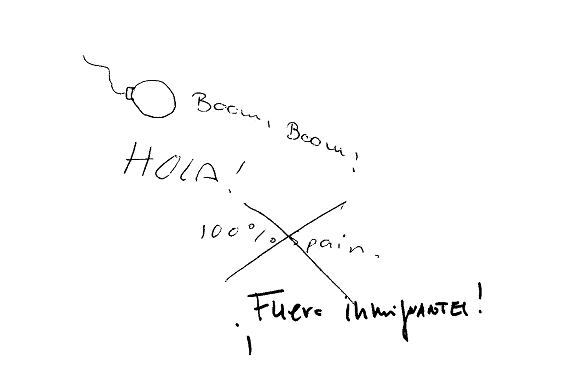 Boom, Boom!
HOLA!
100% Spain.
¡Fuera inmigrantes!